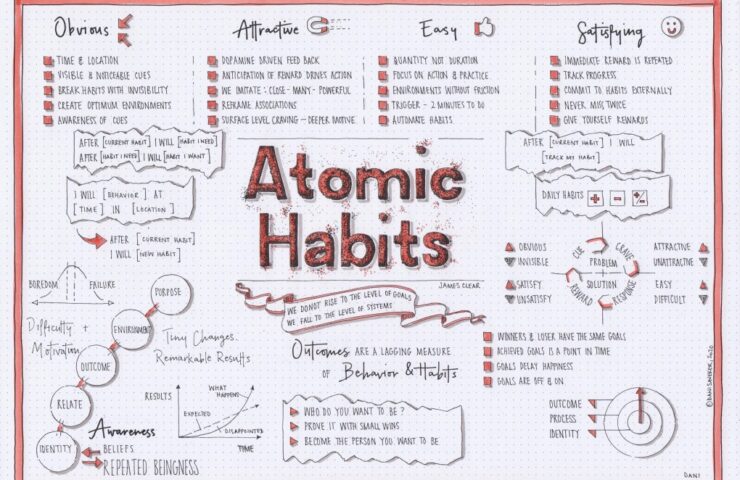 Obvious
TIME & LOCATION
VISIBLE & NOTICEABLE CUES
BREAK HABITS WITH INVISIBILITY
CREATE OPTIMUM ENVIRONMENTS
AWARENESS OF CUES
Attractive
DOPAMINE DRIVEN FEED BACK
ANTICIPATION OF REWARD DRIVES ACTION
WE IMITATE: CLOSE - MANY - POWERFUL
REFRAME ASSOCIATIONS
SURFACE LEVEL CRAVING ~ DEEPER MOTIVE
Easy
QUANTITY NOT DURATION
FOCUS ON ACTION & PRACTICE
ENVIRONMENTS WITHOUT FRICTION
TRIGGER - 2 MINUTES TO DO
AUTOMATE HABITS
Satisfying
IMMEDIATE REWARD IS REPEATED
TRACK PROGRESS
COMMIT TO HABITS EXTERNALLY
NEVER MISS TWICE
GIVE YOURSELF REWARDS
AFTER [CURRENT HABIT] I WILL [HABIT I NEED]
AFTER [HABIT I NEED] I WILL [HABIT I WANT]
I WILL [BEHAVIOR] AT
[TIME] IN [LOCATION]
AFTER [CURRENT HABIT]
I WILL [NEW HABIT]
Atomic
Habits
JAMES CLEAR
WE DO NOT RISE TO THE LEVEL OF GOALS
WE FALL TO THE LEVEL OF SYSTEMS
AFTER [CURRENT HABIT] I WILL
[TRACK MY HABIT]
DAILY HABITS + - +/-
OBVIOUS
INVISIBLE
SATISFY
UNSATISFY
CUE
CRAVE
RESPONSE
REWARD
PROBLEM
SOLUTION
ATTRACTIVE
UNATTRACTIVE
EASY
DIFFICULT
BOREDOM
FAILURE
Difficulty +
Motivation
PURPOSE
ENVIRONMENT
OUTCOME
RELATE
IDENTITY
Tiny Changes.
Remarkable Results
RESULTS
WHAT
HAPPENS
EXPECTED
DISAPPOINTED
TIME
Awareness
BELIEFS
REPEATED BEINGNESS
Outcomes ARE A LAGGING MEASURE
OF Behavior & Habits
WHO DO YOU WANT TO BE?
PROVE IT WITH SMALL WINS
BECOME THE PERSON YOU WANT TO BE
WINNERS & LOSER HAVE THE SAME GOALS
ACHIEVED GOALS IS A POINT IN TIME
GOALS DELAY HAPPINESS
GOALS ARE OFF & ON
OUTCOME
PROCESS
IDENTITY
DANI